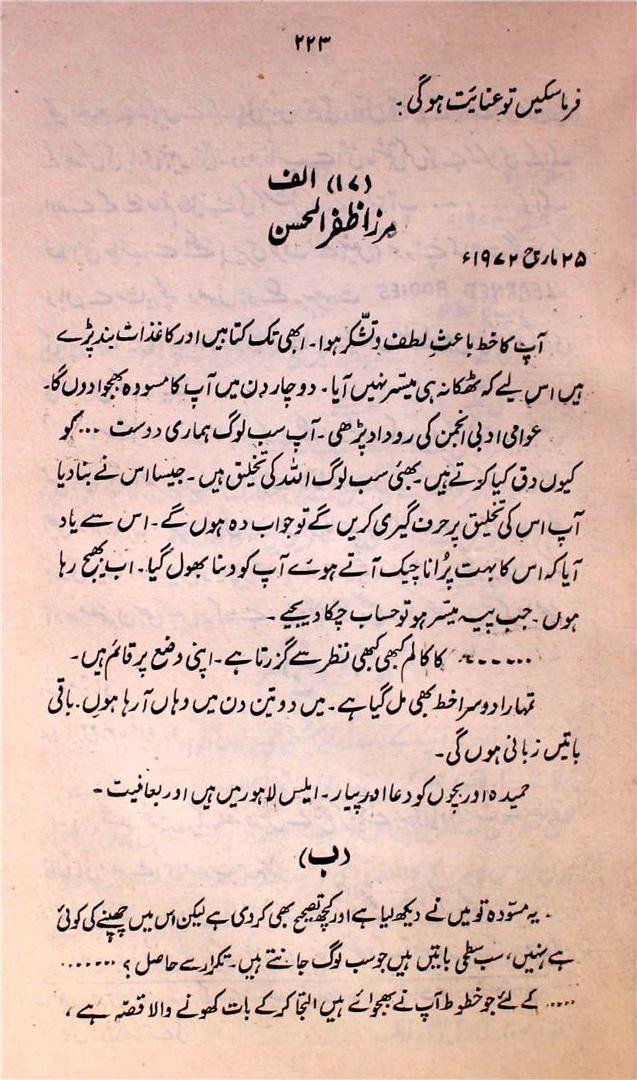 ۲۲۳
فرماسکیں تو عنایت ہوگی۔
(۱۷) الف
مرزا ظفر الحسن
۲۵ مارچ ۱۹۷۲ء
آپ کا خط باعثِ لطف و تشکّر ہوا۔ ابھی تک کتابیں اور کاغذات بند پڑے
ہیں اس لیے کہ ٹھکانہ ہی میسّر نہیں آیا۔ دو چار دن میں آپ کا مسودہ بھجوا دوں گا۔
عوامی ادبی انجمن کی روداد پڑھی۔ آپ سب لوگ ہماری دوست ... کو
کیوں دق کیا کرتے ہیں۔ بھئی سب لوگ اللہ کی تخلیق ہیں۔ جیسا اس نے بنا دیا
آپ اس کی تخلیق پر حرف گیری کریں گے تو جواب دہ ہوں گے۔ اس سے یاد
آیا کہ اس کا بہت پُرانا چیک آتے ہوئے آپ کو دینا بھول گیا۔ اب بھیج رہا
ہوں۔ جب پیسہ میسر ہو تو حساب چکا دیجیے۔
...... کا کالم کبھی کبھی نظر سے گزرتا ہے۔ اپنی وضع پر قائم ہیں۔
تمہارا دوسرا خط بھی مل گیا ہے۔ میں دو تین دن میں وہاں آ رہا ہوں۔ باقی
باتیں زبانی ہوں گی۔
حمیدہ اور بچوں کو دعا اور پیار۔ ایلس لاہور میں ہیں اور بعافیت۔
(ب)
۔ یہ مسوّدہ تو میں نے دیکھ لیا ہے اور کچھ تصحیح بھی کردی ہے لیکن اس میں چھپنے کی کوئی
ہے نہیں، سب سطحی باتیں ہیں جو سب لوگ جانتے ہیں۔ تکرار سے حاصل؟ .......
.... کے لئے جو خطوط آپ نے بھجوائے ہیں التجا کر کے بات کھونے والا قصّہ ہے،